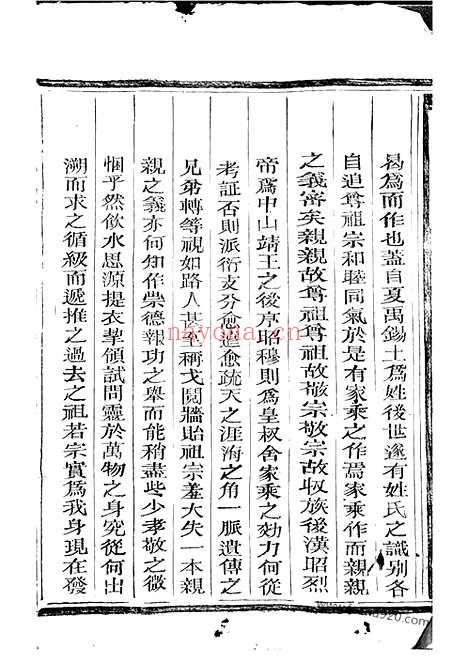 曷爲而作也蓋自夏禹錫土爲姓後世遂有姓氏之識別各
自追尊祖宗和睦同氣於是有家乘之作焉家乘作而親親
之義審矣親親故尊祖尊祖故敬宗敬宗故收族後漢昭烈
帝爲中山靖王之後序昭穆則爲皇叔舍家乘之効力何從
考証否則派衍支分愈遠愈疏天之涯海之角一脈遺傳之
兄弟轉等視如路人甚至稱戈鬩牆貽祖宗羞大失一本親
親之義亦何知作崇德報功之舉而能稍盡些少孝敬之微
悃乎然飲水思源提衣挈領試問靈於萬物之身究從何出
溯而求之循級而遞推之過去之祖若宗實爲我身現在發
nayona.cn